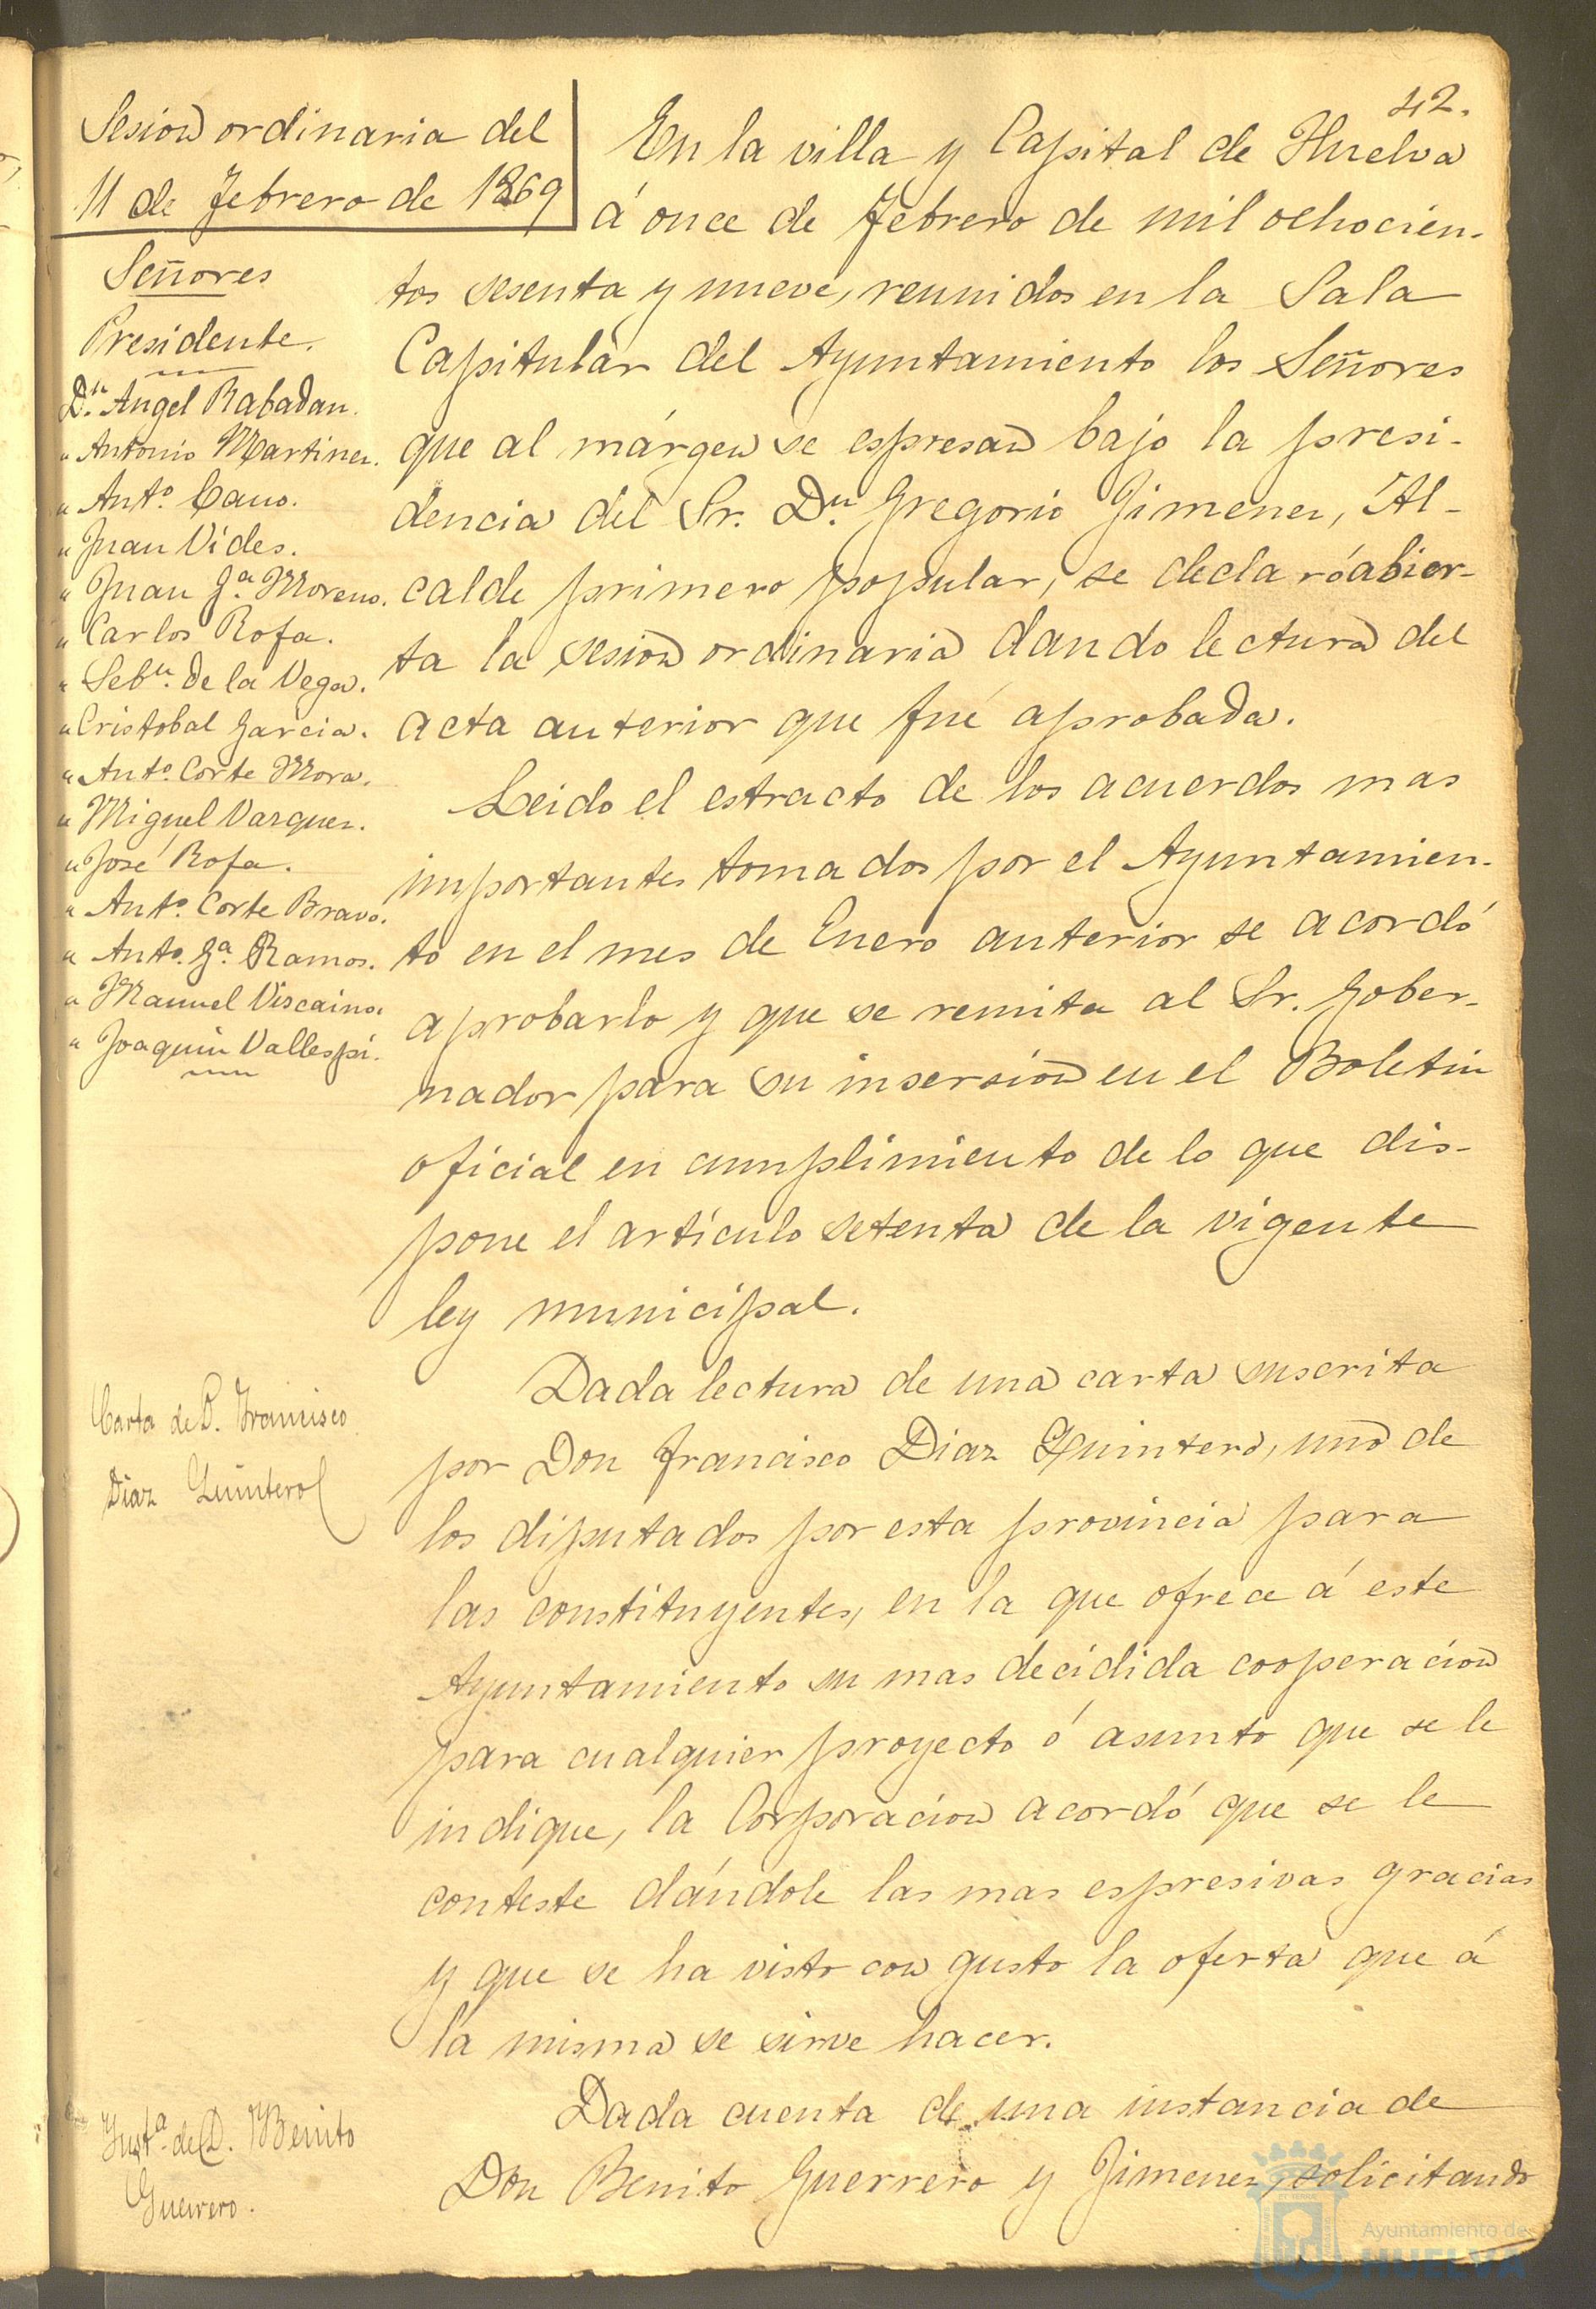 42.
Sesion ordinaria del
11 de Febrero de 1869
Señores
Presidente.
Dn. Angel Rabadan.
" Antonio Martinez.
" Anto. Cano.
" Juan Vides.
" Juan Ga. Moreno.
" Carlos Rofa.
" Sebn. de la Vega.
" Cristobal Garcia.
" Anto. Corte Mora.
" Miguel Vazquez.
" José Rofa.
" Anto. Corte Bravo.
" Anto. Ga. Ramos.
" Manuel Viscaino.
" Joaquin Vallespi.
En la villa y Capital de Huelva
á once de Febrero de mil ochocien-
tos sesenta y nueve, reunidos en la Sala
Capitular del Ayuntamiento los Señores
que al márgen se espresan bajo la presi-
dencia del Sr. Dn. Gregorio Jimenez, Al-
calde primero popular, se declaró abier-
ta la sesion ordinaria dando lectura del
acta anterior que fué aprobada.
Leido el estracto de los acuerdos mas
importantes tomados por el Ayuntamien-
to en el mes de Enero anterior se acordó
aprobarlo y que se remita al Sr. Gober-
nador para su insersion en el Boletin
oficial en cumplimiento de lo que dis-
pone el artículo setenta de la vigente
ley municipal.
Carta de D. Francisco
Diaz Quintero
Dada lectura de una carta suscrita
por Don Francisco Diaz Quintero, uno de
los diputados por esta provincia para
las constituyentes, en la que ofrece á este
Ayuntamiento su mas decidida cooperacion
para cualquier proyecto ó asunto que se le
indique, la Corporacion acordó que se le
conteste dándole las mas espresivas gracias
y que se ha visto con gusto la oferta que á
la misma se sirve hacer.
Insta. de D. Benito
Guerrero.
Dada cuenta de una instancia de
Don Benito Guerrero y Jimenez, solicitando
Ayuntamiento de
HUELVA